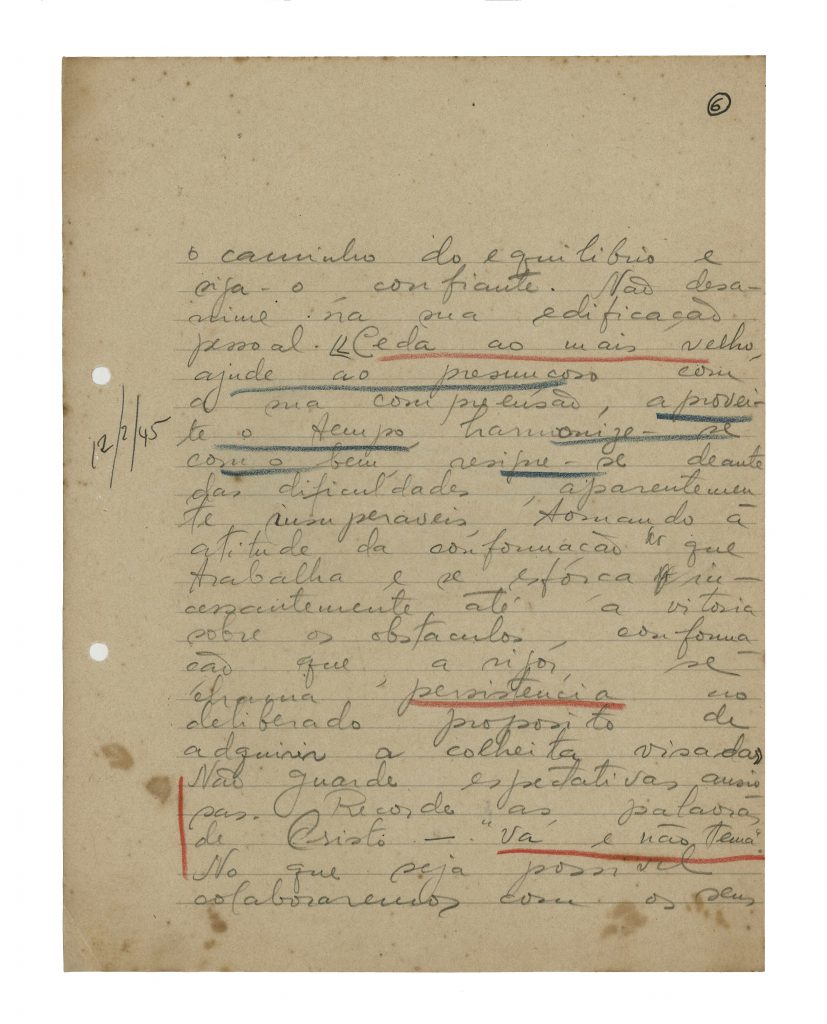 6
o caminho do equilibrio e
siga-o confiante. Não desa-
nime na sua edificação
pessoal. Ceda ao mais velho,
ajude ao presunçoso com
a sua compreensão, aprovei-
te o tempo, harmonize-se
12/2/45
com o bem, resigne-se deante
das dificuldades aparentemen
te insuperaveis, tomando à
atitude da conformação que
trabalha e se esfórça in-
cessantemente até à vitoria
sobre os obstaculos, conforma
ção que, a rigôr, se
chama persistencia no
deliberado proposito de
adquirir a colheita visada.
Não guarde espectativas ansio
sas. Recorde as palavras
de Cristo — "Vá e não tema".
No que seja possivel
colaboraremos com os seus